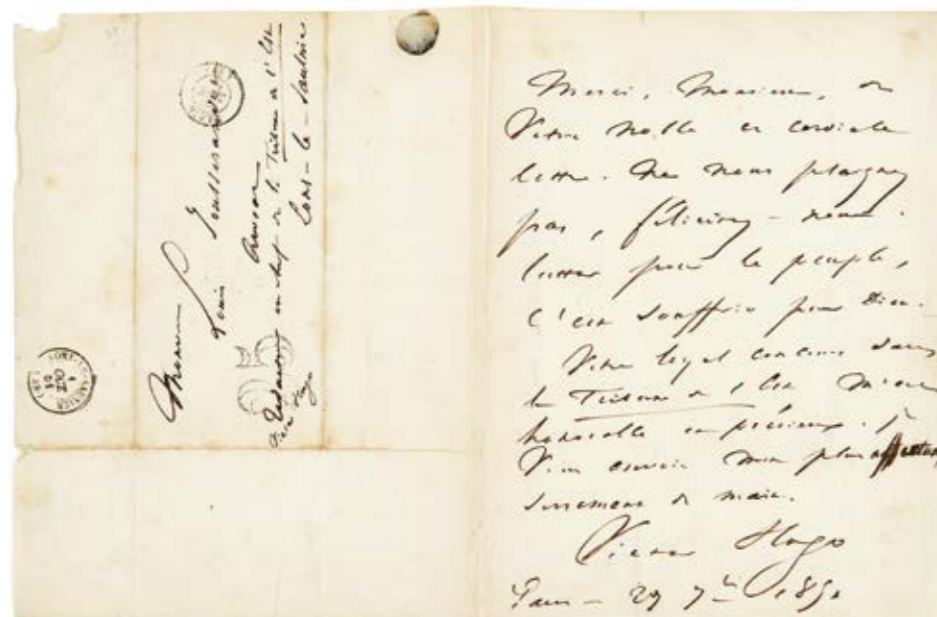 Monsieur
Louis
avocat
Rédacteur en chef de la Tribune de l'Est
Lons-le-Saulnier
Victor Hugo
1
OCT
51
Merci, Monsieur, de
votre noble et cordiale
lettre. Ne nous plaignez
pas, félicitez-nous.
lutter pour le peuple,
c'est souffrir pour Dieu.
Votre loyal concours dans
la Tribune de l'Est m'est
précieux. Je
vous envoie mon plus affectueux
serrement de main.
Victor Hugo
Paris - 29 7bre 1851